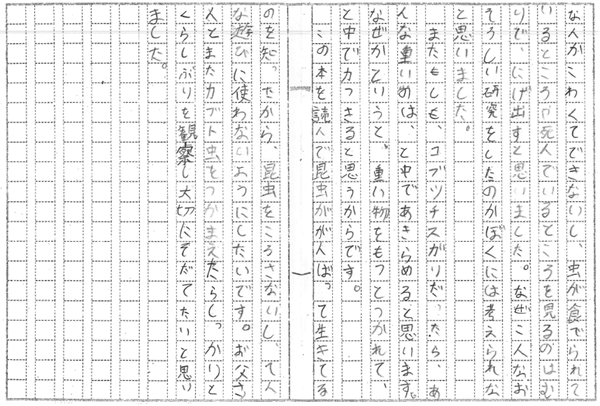 な人がこわくてできないし、虫が食でられて
いるところや死んでいるところを見るのはむ
りで、にげ出すと思いました。なぜこんなお
そろしい研究をしたのかぼくには考えられな
と思いました。
またもしも、コブツチスガリだったら、あ
んな重いめは、と中であきらめると思います。
なぜかというと、重い物をもつとつかれて、
と中で力つきると思うからです。
この本を読んで昆虫ががんばって生きてる
のを知ったから、昆虫をころさないし、てん
な遊びに使わないようにしたいです。お父さ
んとまたカブト虫をつかまえたらしっかりと
くらしぶりを観察し大切にそだてたいと思い
ました。